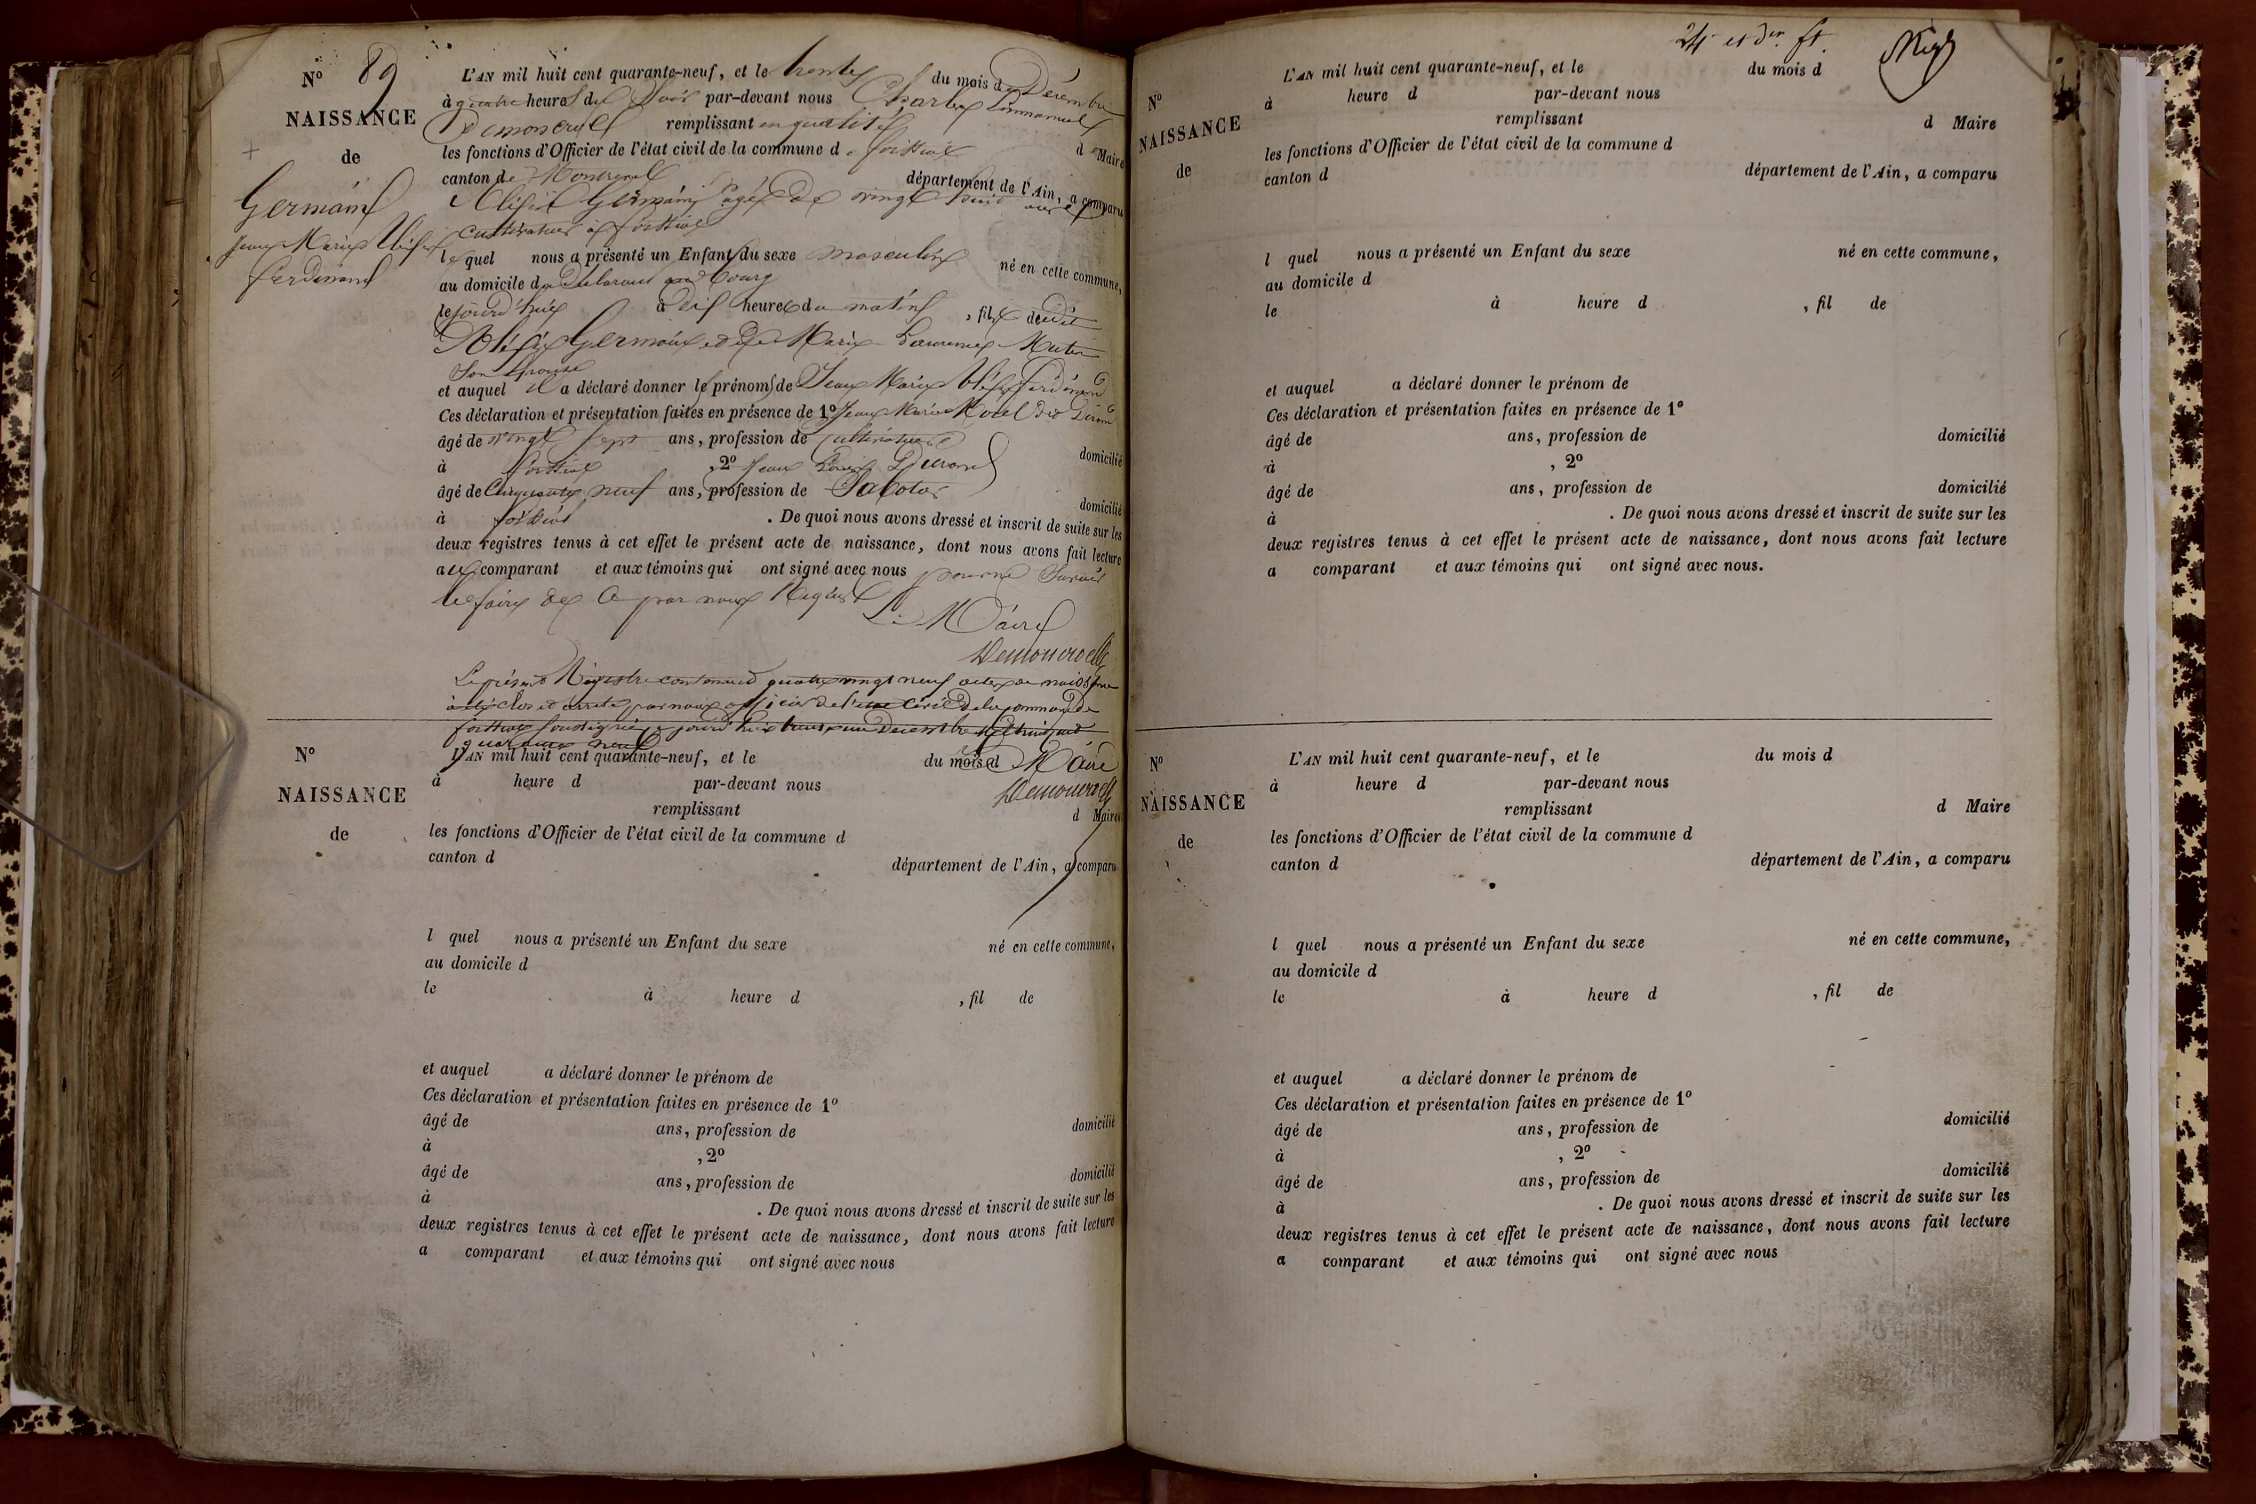 N° 89
NAISSANCE
de
Germain
Jean Marie Alexis
Ferdinand
L'AN mil huit cent quarante-neuf, et le trente du mois de Décembre
à quatre heures du Soir par-devant nous Charles Emmanuel
remplissant en qualité de Maire
les fonctions d'Officier de l'état civil de la commune de foissiat
canton de Montrevel département de l'Ain, a comparu
Germain agé de vingt huit ans
cultivateur à foissiat
lequel nous a présenté un Enfant du sexe masculin né en cette commune,
au domicile du Déclarant au bourg
le jourd'hui à dix heures du matin, fils dudit
Germain et de Marie
Son épouse
et auquel il a déclaré donner les prénoms de Jean Marie Alexis ferdinand
Ces déclaration et présentation faites en présence de 1° Jean Marie Morel
âgé de vingt Sept ans, profession de Cultivateur domicilié
à foissiat, 2° Jean Louis Durand
âgé de Cinquante neuf ans, profession de Sabotier domicilié
à foissiat. De quoi nous avons dressé et inscrit de suite sur les
deux registres tenus à cet effet le présent acte de naissance, dont nous avons fait lecture
aux comparant et aux témoins qui ont signé avec nous pour ne Savoir
le faire de Ce par nous Requis
Le Maire
Le présent Registre contenant quatre vingt neuf actes de naissance
à été clos et arreté par nous officier de l'état Civil de la commune de
foissiat Soussigné le jourd'hui trente un Decembre mil huit cent
quarante neuf
Le Maire
N°
NAISSANCE
de
L'AN mil huit cent quarante-neuf, et le du mois d
à heure d par-devant nous
remplissant d Maire
les fonctions d'Officier de l'état civil de la commune d
canton d département de l'Ain, a comparu
l quel nous a présenté un Enfant du sexe né en cette commune,
au domicile d
le à heure d , fil de
et auquel a déclaré donner le prénom de
Ces déclaration et présentation faites en présence de 1°
âgé de ans, profession de domicilié
à , 2°
âgé de ans, profession de domicilié
à . De quoi nous avons dressé et inscrit de suite sur les
deux registres tenus à cet effet le présent acte de naissance, dont nous avons fait lecture
a comparant et aux témoins qui ont signé avec nous
24 et der ft.
N°
NAISSANCE
de
L'AN mil huit cent quarante-neuf, et le du mois d
à heure d par-devant nous
remplissant d Maire
les fonctions d'Officier de l'état civil de la commune d
canton d département de l'Ain, a comparu
l quel nous a présenté un Enfant du sexe né en cette commune,
au domicile d
le à heure d , fil de
et auquel a déclaré donner le prénom de
Ces déclaration et présentation faites en présence de 1°
âgé de ans, profession de domicilié
à , 2°
âgé de ans, profession de domicilié
à . De quoi nous avons dressé et inscrit de suite sur les
deux registres tenus à cet effet le présent acte de naissance, dont nous avons fait lecture
a comparant et aux témoins qui ont signé avec nous.
N°
NAISSANCE
de
L'AN mil huit cent quarante-neuf, et le du mois d
à heure d par-devant nous
remplissant d Maire
les fonctions d'Officier de l'état civil de la commune d
canton d département de l'Ain, a comparu
l quel nous a présenté un Enfant du sexe né en cette commune,
au domicile d
le à heure d , fil de
et auquel a déclaré donner le prénom de
Ces déclaration et présentation faites en présence de 1°
âgé de ans, profession de domicilié
à , 2°
âgé de ans, profession de domicilié
à . De quoi nous avons dressé et inscrit de suite sur les
deux registres tenus à cet effet le présent acte de naissance, dont nous avons fait lecture
a comparant et aux témoins qui ont signé avec nous